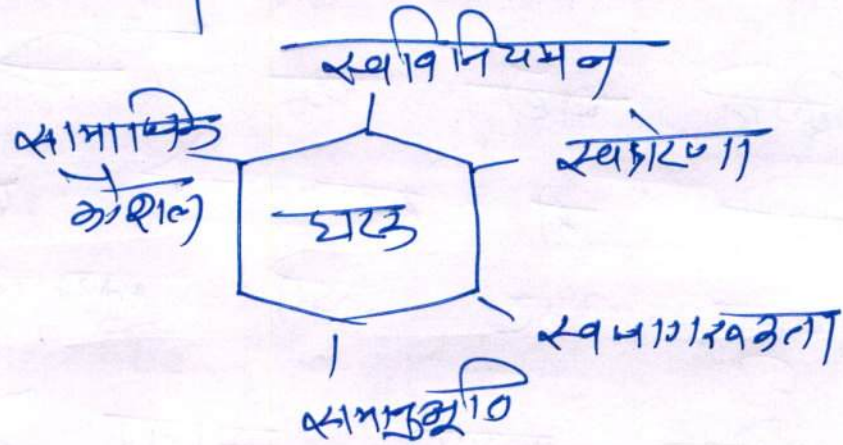 स्वविनियमन
सामाजिक
कौशल
स्वप्रेरणा
घटक
स्वजागरूकता
समानुभूति